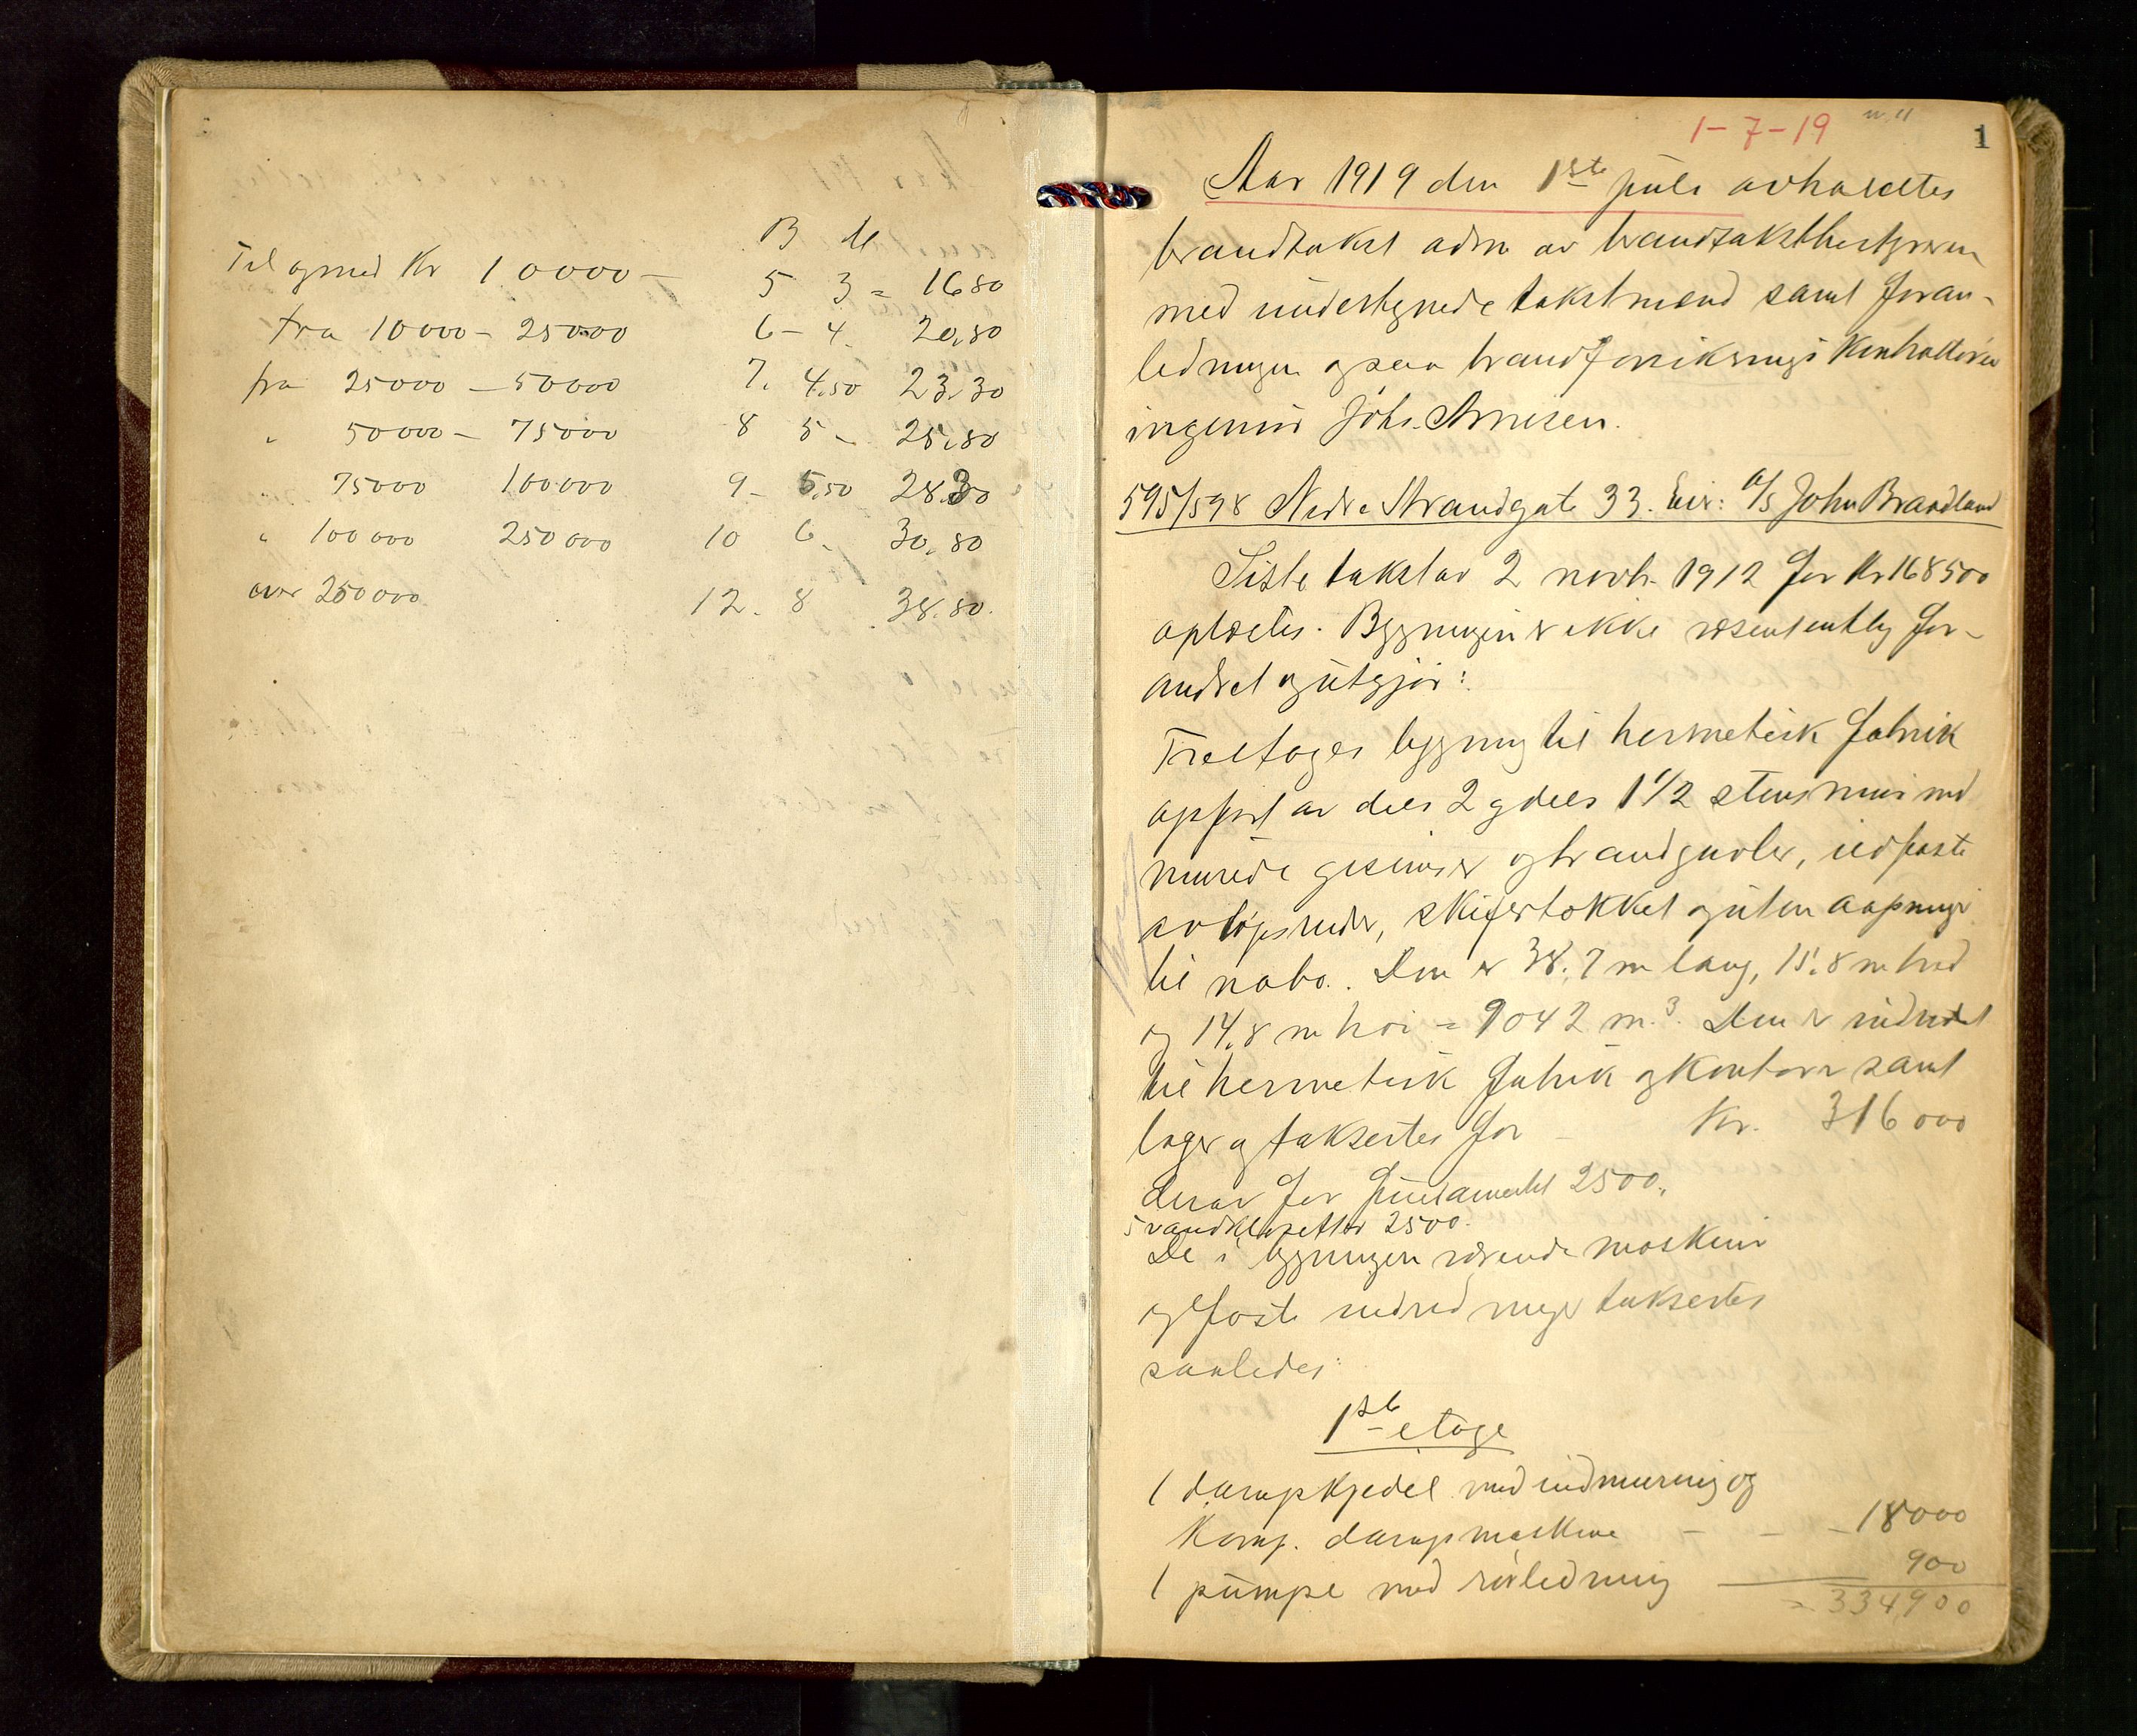 B M
Til og med Kr 10000 — 5 3 = 16 80
fra 10000 – 25000 6 – 4. 20,80
fra 25000 – 50000 7. 4.50 23.30
" 50000 – 75000 8 5 – 25,80
" 75000 100000 9 – 5.50 28.30
" 100000 250000 10 6. 30,80
over 250000 12. 8 38.80.
1-7-19
1
Aar 1919 den 1ste juli avholdtes
brandtakst adm av brandtakstbestyreren
med undertegnede takstmænd samt foran-
ledningen ogsaa brandforsikrings Kontrolløren
ingeniør Johs. Arnesen.
595/598 Nedre Strandgate 33. Eier: A/S John Braadland
Siste takst av 2 novbr 1912 for Kr 168500
oplæstes. Bygningen er ikke væsententlig for-
andret og utgjør:
Treetages bygning til hermetisk fabrik
opført av dels 2 og dels 1 1/2 stens mur med
murede gesimser og brandgavler, indfaste
avløpsrender, skifertækket og uten aapninger
til nabo. Den er 38.7 m lang, 15,8 m bred
og 14,8 m høi = 9042 m.³ Den er indredet
til hermetisk fabrik og kontorer samt
lager og takseres for – Kr. 316000
derav for fundamentet 2500,,
5 vandklosetter 2500.
De i bygningen værende maskiner
og faste indredninger takseres
saaledes:
1ste etage
1 dampkjedel med indmuring og
Komp. dampmaskine – – – 18000
1 pumpe med rørledning 900
= 334900